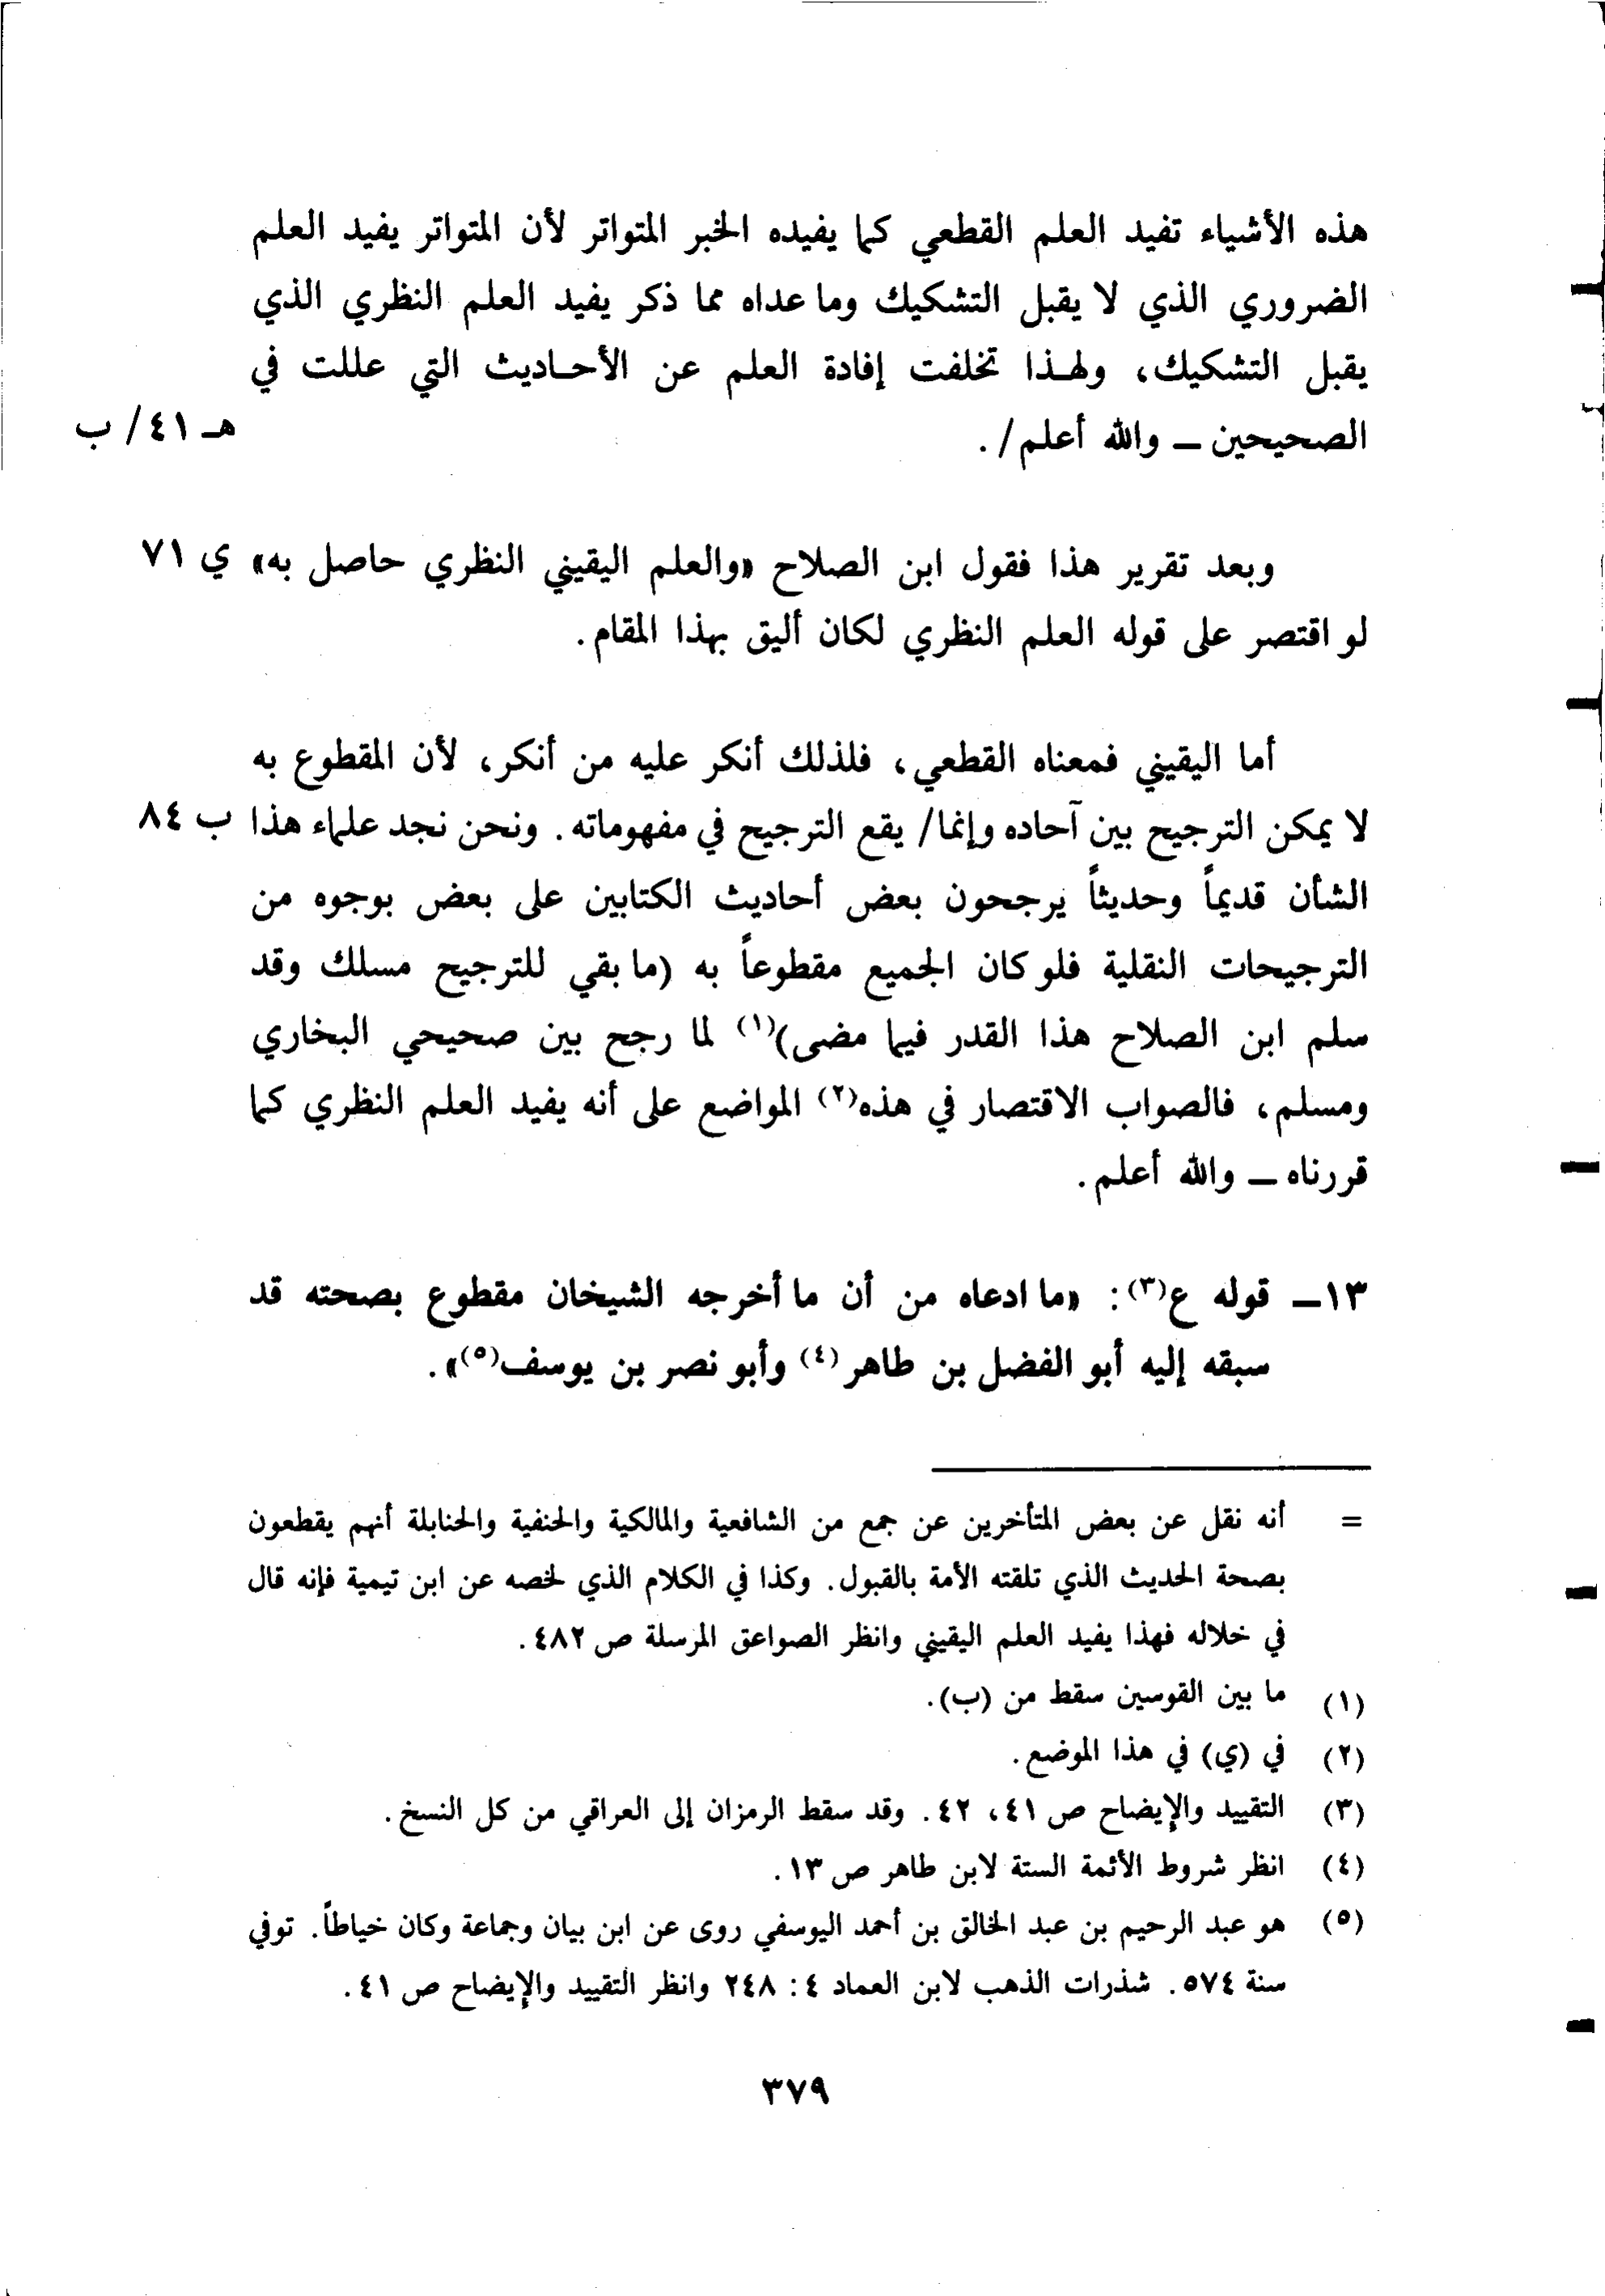 هذه الأشياء تفيد العلم القطعي كما يفيده الخبر المتواتر لأن المتواتر يفيد العلم
الضروري الذي لا يقبل التشكيك وما عداه مما ذكر يفيد العلم النظري الذي
يقبل التشكيك، ولهـذا تخلفت إفادة العلم عن الأحـاديث التي عللت في
الصحيحين ــ والله أعلم/. هـ ٤١/ ب
وبعد تقرير هذا فقول ابن الصلاح «والعلم اليقيني النظري حاصل به» ي ٧١
لو اقتصر على قوله العلم النظري لكان أليق بهذا المقام.
أما اليقيني فمعناه القطعي، فلذلك أنكر عليه من أنكر، لأن المقطوع به
لا يمكن الترجيح بين آحاده وإنما/ يقع الترجيح في مفهوماته. ونحن نجد علماء هذا ب ٨٤
الشأن قديماً وحديثاً يرجحون بعض أحاديث الكتابين على بعض بوجوه من
الترجيحات النقلية فلو كان الجميع مقطوعاً به (ما بقي للترجيح مسلك وقد
سلم ابن الصلاح هذا القدر فيما مضى)(١) لما رجح بين صحيحي البخاري
ومسلم، فالصواب الاقتصار في هذه(٢) المواضع على أنه يفيد العلم النظري كما
قررناه ــ والله أعلم.
١٣ــ قوله ع(٣): «ما ادعاه من أن ما أخرجه الشيخان مقطوع بصحته قد
سبقه إليه أبو الفضل بن طاهر(٤) وأبو نصر بن يوسف(٥)».
= أنه نقل عن بعض المتأخرين عن جمع من الشافعية والمالكية والحنفية والحنابلة أنهم يقطعون
بصحة الحديث الذي تلقته الأمة بالقبول. وكذا في الكلام الذي لخصه عن ابن تيمية فإنه قال
في خلاله فهذا يفيد العلم اليقيني وانظر الصواعق المرسلة ص ٤٨٢.
(١) ما بين القوسين سقط من (ب).
(٢) في (ي) في هذا الموضع.
(٣) التقييد والإيضاح ص ٤١، ٤٢. وقد سقط الرمزان إلى العراقي من كل النسخ.
(٤) انظر شروط الأئمة الستة لابن طاهر ص ١٣.
(٥) هو عبد الرحيم بن عبد الخالق بن أحمد اليوسفي روى عن ابن بيان وجماعة وكان خياطاً. توفي
سنة ٥٧٤. شذرات الذهب لابن العماد ٤: ٢٤٨ وانظر التقييد والإيضاح ص ٤١.
٣٧٩